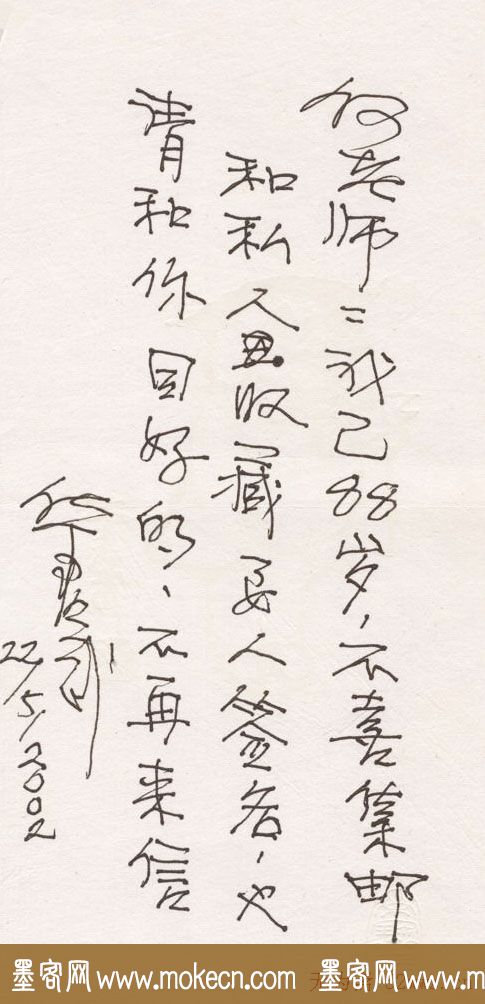 何老师：我已88岁，不喜集邮
和私人收藏要人签名，也
请和你同好的，不再来信
22/5/2002
墨客网 www.mokecn.com 墨客网 www.mokecn.com